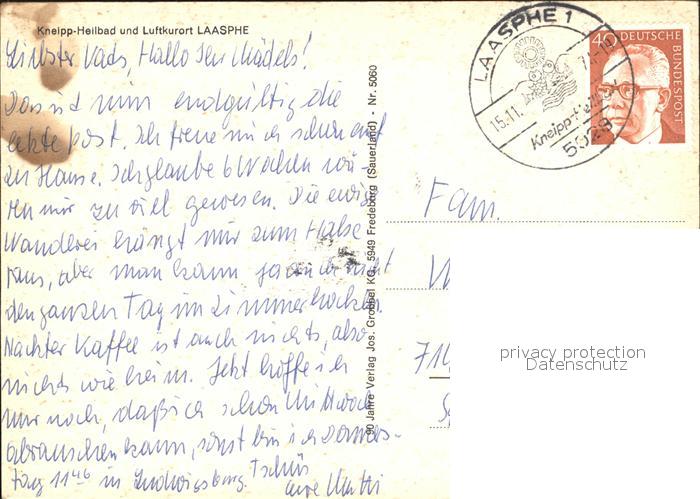 Kneipp-Heilbad und Luftkurort LAASPHE
Liebster Vads, Hallo Ihr Mädels!
Das ist nun endgültig die
letzte Post. Ich freue mich schon auf
zu Hause. Ich glaube 6 Wochen wä-
ren mir zu viel gewesen. Die ewige
Wanderei hängt mir zum Halse
raus, aber man kann ja auch nicht
den ganzen Tag im Zimmer hocken.
Nachher Kaffee ist auch nichts, also
nichts wie heim. Jetzt hoffe ich
nur noch, daß ich schon Mittwoch
abrauschen kann, sonst bin ich Donners-
tag 11 46 in Ludwigsburg. Tschüs
eure Mutti
90 Jahre Verlag Jos. Grobbel KG, 5949 Fredeburg (Sauerland) - Nr. 5060
LAASPHE 1
15.11.
Kneipp-Heilbad
5928
40 DEUTSCHE
BUNDESPOST
Fam.
71
privacy protection
Datenschutz